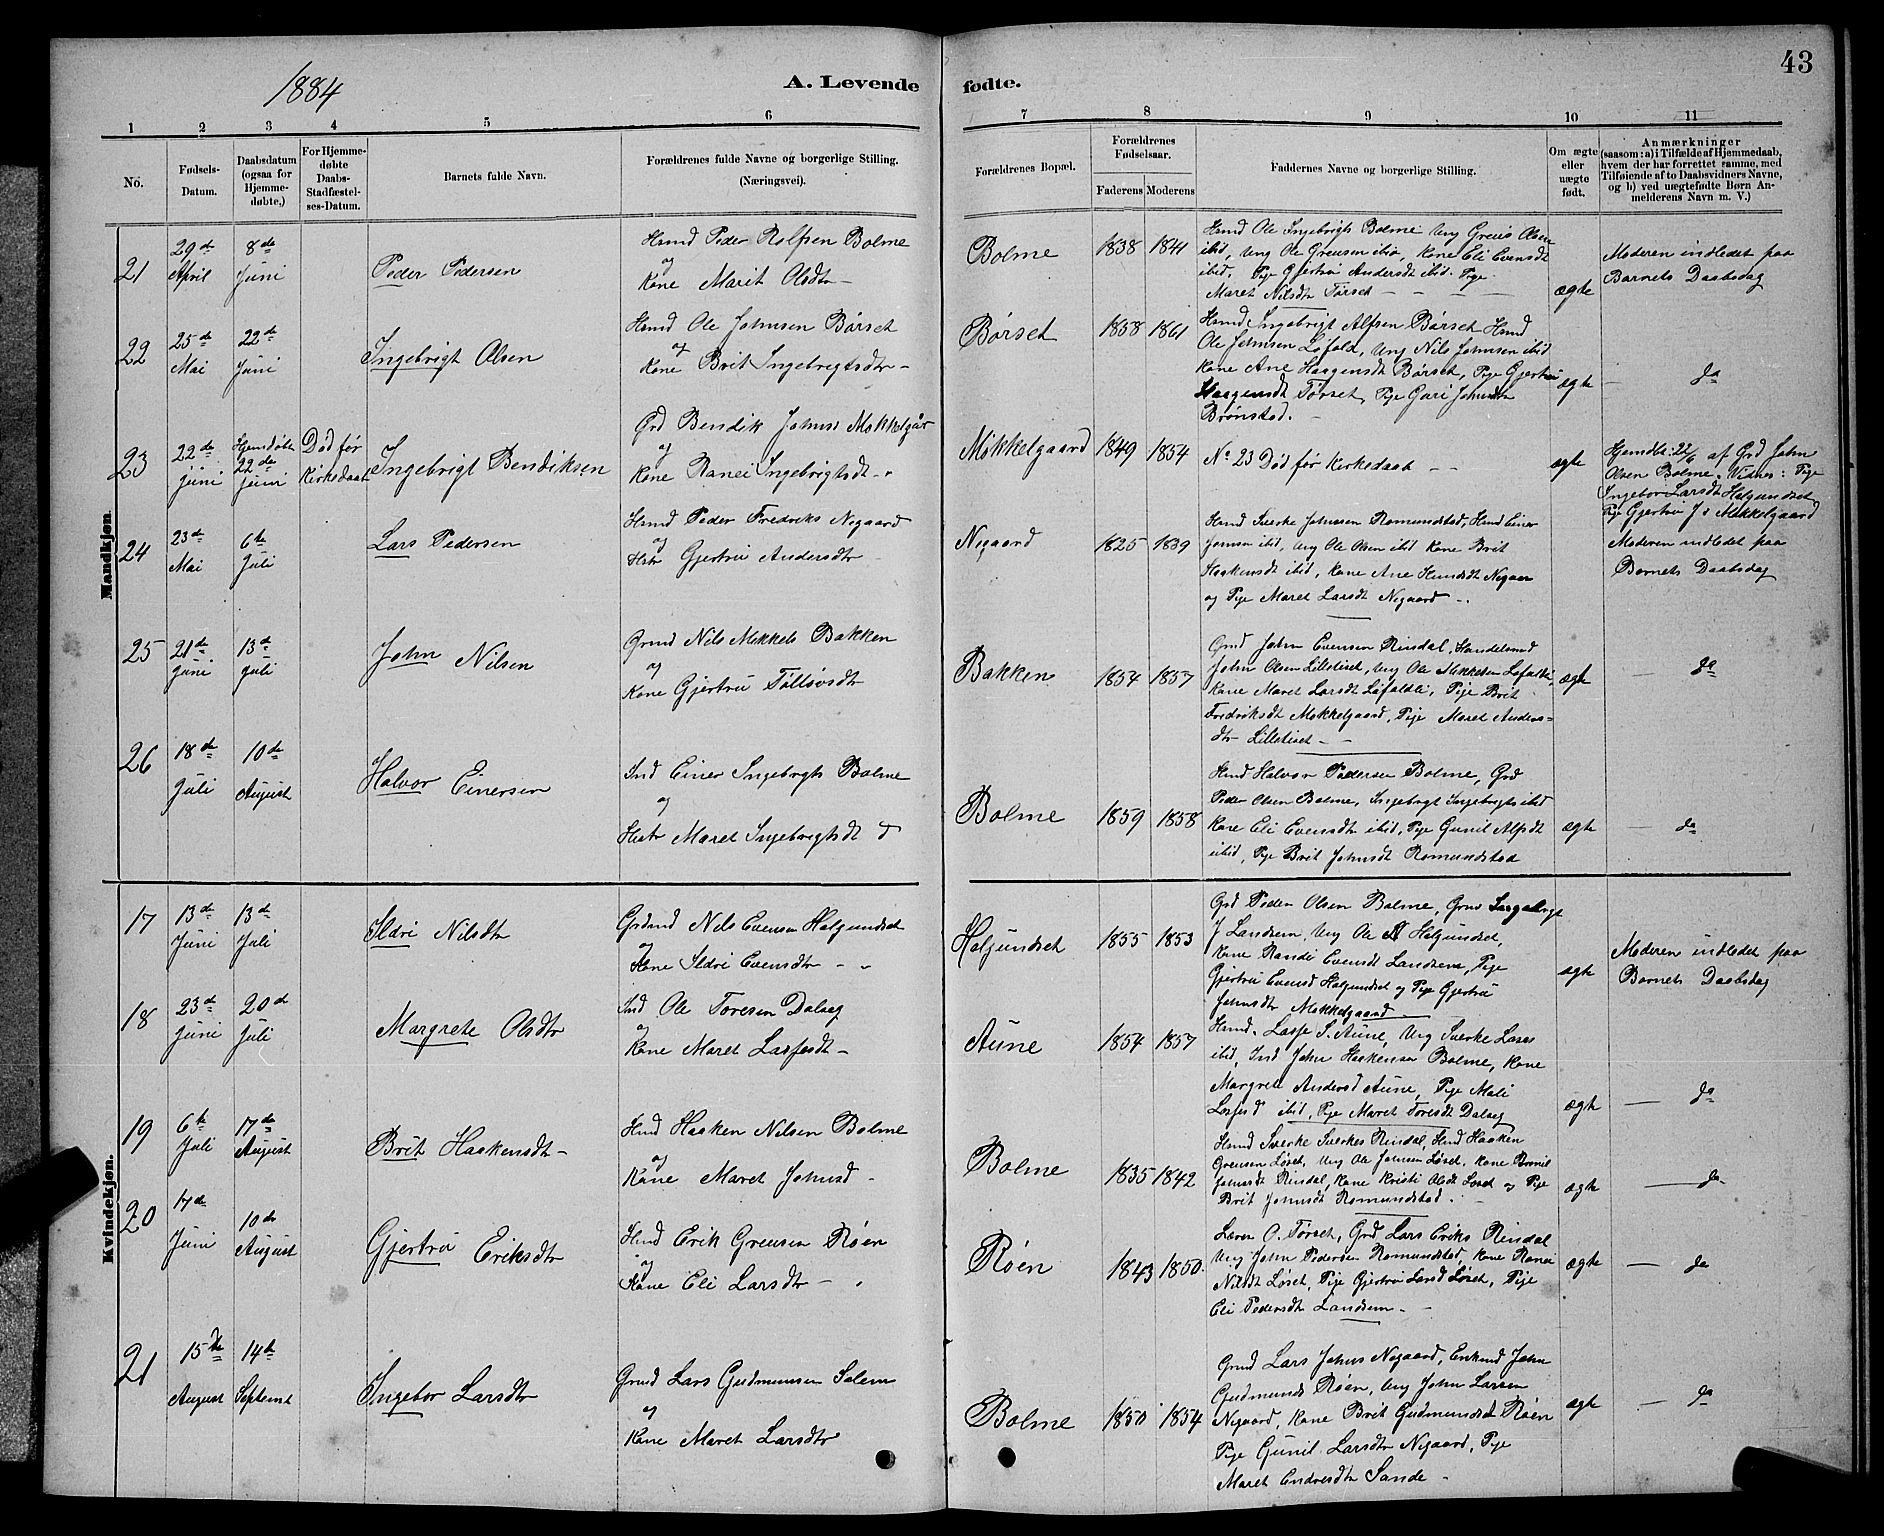 43
1884
A. Levende fødte.
1 2 3 4 5 6 7 8 9 10 11
No.
Fødsels-
Datum.
Daabsdatum
(ogsaa for
Hjemme-
døbte,)
For Hjemme-
døbte
Daabs-
Stadfæstel-
ses-Datum.
Barnets fulde Navn.
Forældrenes fulde Navne og borgerlige Stilling.
(Næringsvei).
Forældrenes Bopæl.
Forældrenes
Fødselsaar.
Faderens Moderens
Faddernes Navne og borgerlige Stilling.
Om ægte
eller
uægte
født.
Anmærkninger
(saasom: a) i Tilfælde af Hjemmedaab,
hvem der har forrettet samme, med
Tilføiende af to Daabsvidners Navne,
og b) ved uægtefødte Børn An-
melderens Navn m. V.)
Mandkjøn.
21
29de
April
8de
Juni
Peder Pedersen
Hmd Peder Rolfsen Bolme
og
Kone Marit Olsdtr -
Bolme
1838 1841
Hmd Ole Ingebrigts Bolme Ung Greus Olsen
ibid, Ung Ole Greusen ibid, Kone Eli Evensdt
ibid. Pige Gjertru Andersdt ibid. Pige
Maret Nilsdtr Tørset - - - -
ægte
Moderen indledet paa
Barnets Daabsdag
22
25de
Mai
22de
Juni
Ingebrigt Olsen
Hmd Ole Johnsen Børset
og
Kone Brit Ingebrigtsdtr -
Børset
1858 1861
Hmd Ingebrigt Alfsen Børset Hmd
Ole Johnsen Løfald, Ung Nils Johnsen ibid
Kone Ane Haagensdt Børset, Pige Gjertru
Haagensdt Tørset, Pige Guri Johnsdtr
Brønstad. -
ægte
- da
23
22de
juni
Hjemdøbt
22de
juni
Død før
Kirkedaab
Ingebrigt Bendiksen
Grd Bendik Johns Møkkelgår
og
Kone Ranei Ingebrigtsdt - "
Møkkelgaard
1849 1854
No 23 Død før Kirkedaab - -
ægte
Hjemdbt: 22/6 af Grd John
Olsen Bolme. Vidner: Pige
Ingebor Larsdt Holgundset
Pige Gjertru J s Møkkelgaard
24
23de
Mai
6te
Juli
Lars Pedersen
Hmd Peder Fredriks Negaard
og
Hstr Gjertru Andersdtr -
Negaard
1825 1839
Hmd Sverke Johnsen Romundstad, Hmd Einer
Johnsen ibid, Ung Ole Olsen ibid Kone Brit
Haakensdt ibid, Kone Ane Hmdsdt Negaar
og Pige Maret Larsdt Negaard - .
Moderen indledet paa
Barnets Daabsdag
25
21de
juni
13de
juli
John Nilsen
Grmd Nils Mikkels Bakken
og
Kone Gjertru Tøllovsdtr
Bakken
1854 1857
Grd John Evensen Rindal, Handelsmd
John Olsen Lilletiset, Ung Ole Mikkelsen Løfaldli,
Kone Maret Larsdt Løfaldli, Pige Brit
Fredriksdt Møkkelgaard, Pige Maret Anders-
dtr Lilletiset - -
ægte
- da
26
18de
Juli
10de
August
Halvor Einersen
Ind Einer Ingebrigts Bolme
og
Hstr Maret Ingebrigtsdt
Bolme
1859 1858
Hmd Halvor Pedersen Bolme, Grd
Peder Olsen Bolme, Ingebrigt Ingebrigts ibid
Kone Eli Evensdtr ibid, Pige Gunil Alfsdt
ibid, Pige Brit Johnsdt Romundstad
ægte
- da
Kvindekjøn.
17
13de
Juni
13de
Juli
Ildri Nilsdtr
Grdmd Nils Evensen Holgundset
og
Kone Ildri Evensdtr - "
Holgundset
1855 1853
Grd Peder Olsen Bolme, Grmd Ingebrigt
J Landsem, Ung Ole Holgundset,
Kone Randi Evensdt Landsem, Pige
Gjertru Evensd Holgundset og Pige Gjertru
Johnsdtr Møkkelgaard. -
ægte
Moderen indledet paa
Barnets Daabsdag
18
23de
Juni
20de
Juli
Margrete Olsdtr
Ind Ole Toresen Dalseg
og
Kone Maret Lassesdt -
Aune
1854 1857
Hmd. Lasse S. Aune, Ung Sverke Lases
ibid, Ind John Haakensen Bolme, Kone
Margrete Andersd Aune, Pige Mali
Lassesd ibid, Pige Maret Toresdt Dalseg
ægte
- da
19
6te
Juli
17de
August
Brit Haakensdt -
Hmd Haaken Nilsen Bolme
og
Kone Maret Johnsd -
Bolme
1835 1842
Hmd Sverke Sverkes Rindal, Hmd Haaken
Greusen Løset, Ung Ole Johnsen Løset. Kone Brønil
Johnsdt Rindal, Kone Kristi Olsdt Løset og Pige
Brit Johnsdt Romundstad. -
ægte
- da
20
17de
Juni
10de
August
Gjertru Eriksdtr
Hmd Erik Greusen Røen
og
Kone Eli Larsdtr - "
Røen
1843 1850.
Laver O. Tørset, Grd Lars Eriks Rindal
Ung John Pedersen Romundstad, Kone Ranei
Nilsdt Løset, Pige Gjertru Larsd Løset, Pige
Eli Pedersdtr Landsem. -
ægte
- da
21
15de
August
14de
Septembr
Ingebor Larsdtr
Grmd Lars Gudmunsen Solem
og
Kone Maret Larsdtr
Bolme
1850 1854
Grmd Lars Johns Negaard, Enkmd John
Gudmunds Røen, Ung John Larsen
Negaard, Kone Brit Gudmundsd Røen
Pige Gunil Larsdtr Negaard, Pige
Maret Endresdtr Sande -
ægte
- da